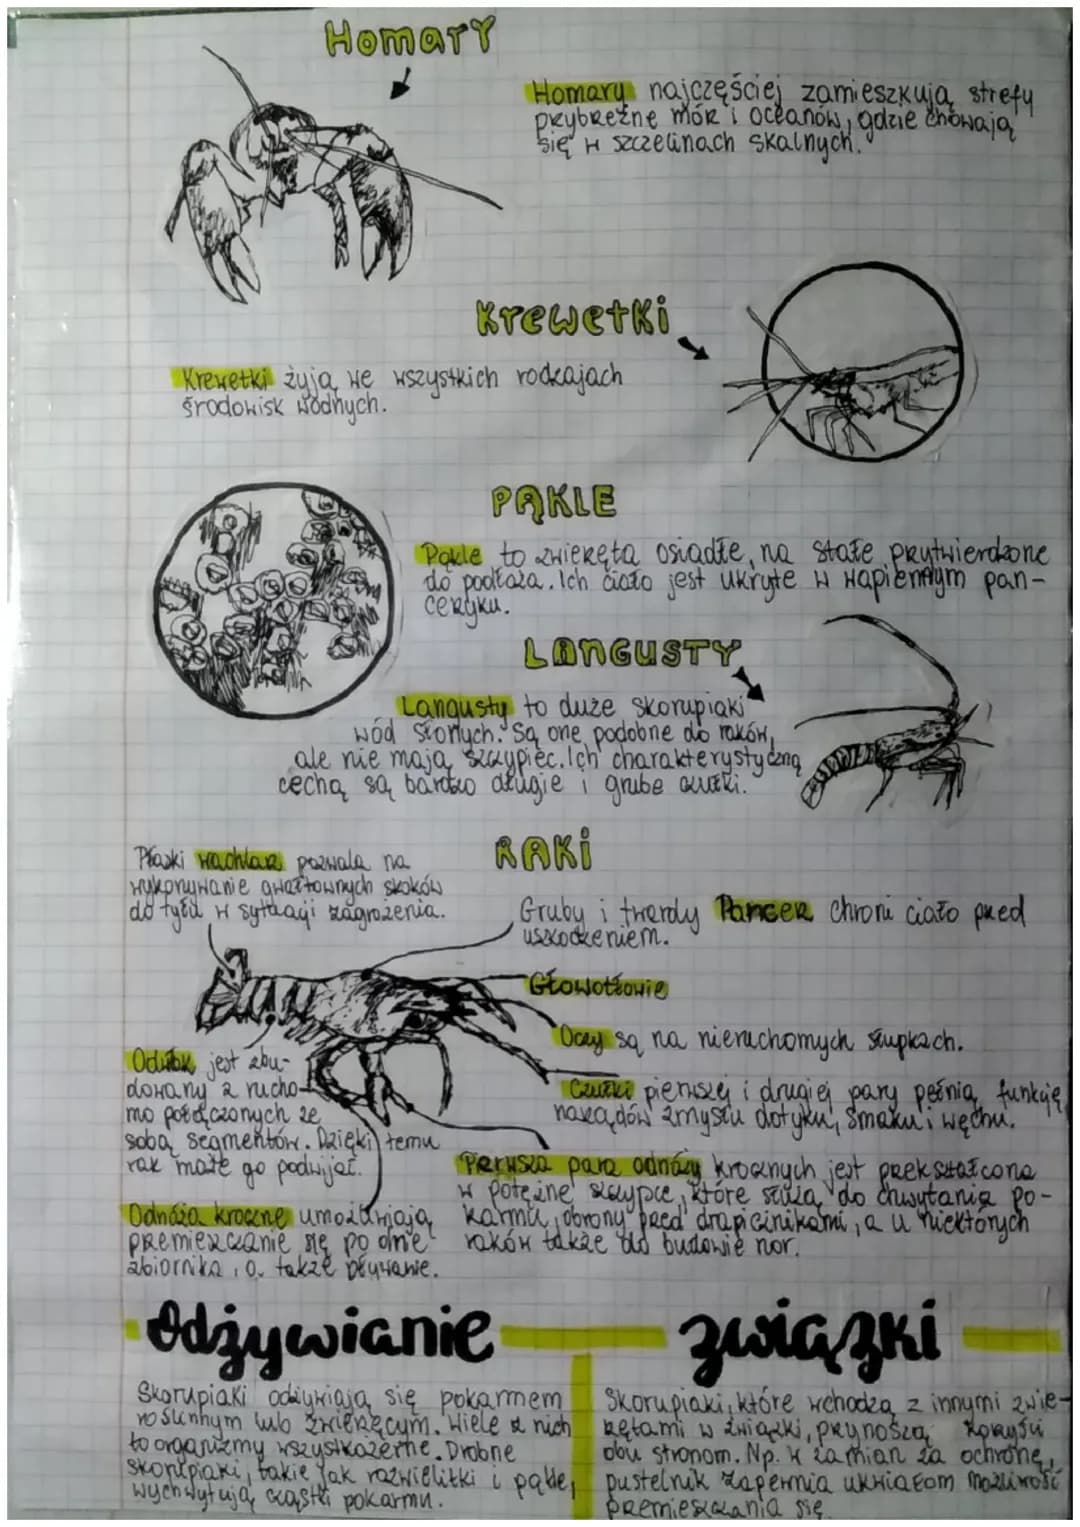 Homary
Homary najczęściej zamieszkują strefy
przybrzeżne mórz i oceanów, gdzie chowają
się w szczelinach skalnych.
Krewetki
Krewetki żyją we wszystkich rodzajach
środowisk wodnych.
PĄKLE
Pąkle to zwierzęta osiadłe, na stałe przytwierdzone
do podłoża. Ich ciało jest ukryte w wapiennym pan-
cerzyku.
LANGUSTY
Langusty to duże skorupiaki
wód słonych. Są one podobne do raków,
ale nie mają szczypiec. Ich charakterystyczną
cechą są bardzo długie i grube czułki.
RAKi
Płaski wachlarz pozwala na
wykonywanie gwałtownych skoków
do tyłu w sytuacji zagrożenia.
Gruby i twardy Pancerz chroni ciało przed
uszkodzeniem.
Głowotłowie
Oczy są na nieruchomych słupkach.
Odwłok jest zbu-
dowany z rucho-
mo połączonych ze
sobą segmentów. Dzięki temu
rak może go podwijać.
Czułki pierwszej i drugiej pary pełnią funkcję
narządów zmysłu dotyku, smaku i węchu.
Pierwsza para odnóży krocznych jest przekształcona
w potężne szczypce, które służą do chwytania po-
karmu, obrony przed drapieżnikami, a u niektórych
raków także do budowie nor.
Odnóża kroczne umożliwiają
przemieszczanie się po dnie
zbiornika, a także pływanie.
Odżywianie
związki
Skorupiaki odżywiają się pokarmem
roślinnym lub zwierzęcym. Wiele z nich
to organizmy wszystkożerne. Drobne
skorupiaki, takie jak rozwielitki i pąkle,
wychwytują cząstki pokarmu.
Skorupiaki, które wchodzą z innymi zwie-
rzętami w związki, przynoszą korzyści
obu stronom. Np. w zamian za ochronę,
pustelnik zapewnia ukwiałom możliwość
przemieszczania się